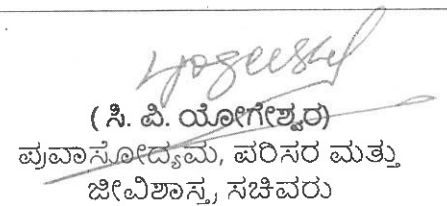 Yogeesh
( ಸಿ. ಪಿ. ಯೋಗೇಶ್ವರ)
ಪ್ರವಾಸೋದ್ಯಮ, ಪರಿಸರ ಮತ್ತು
ಜೀವಿಶಾಸ್ತ್ರ ಸಚಿವರು